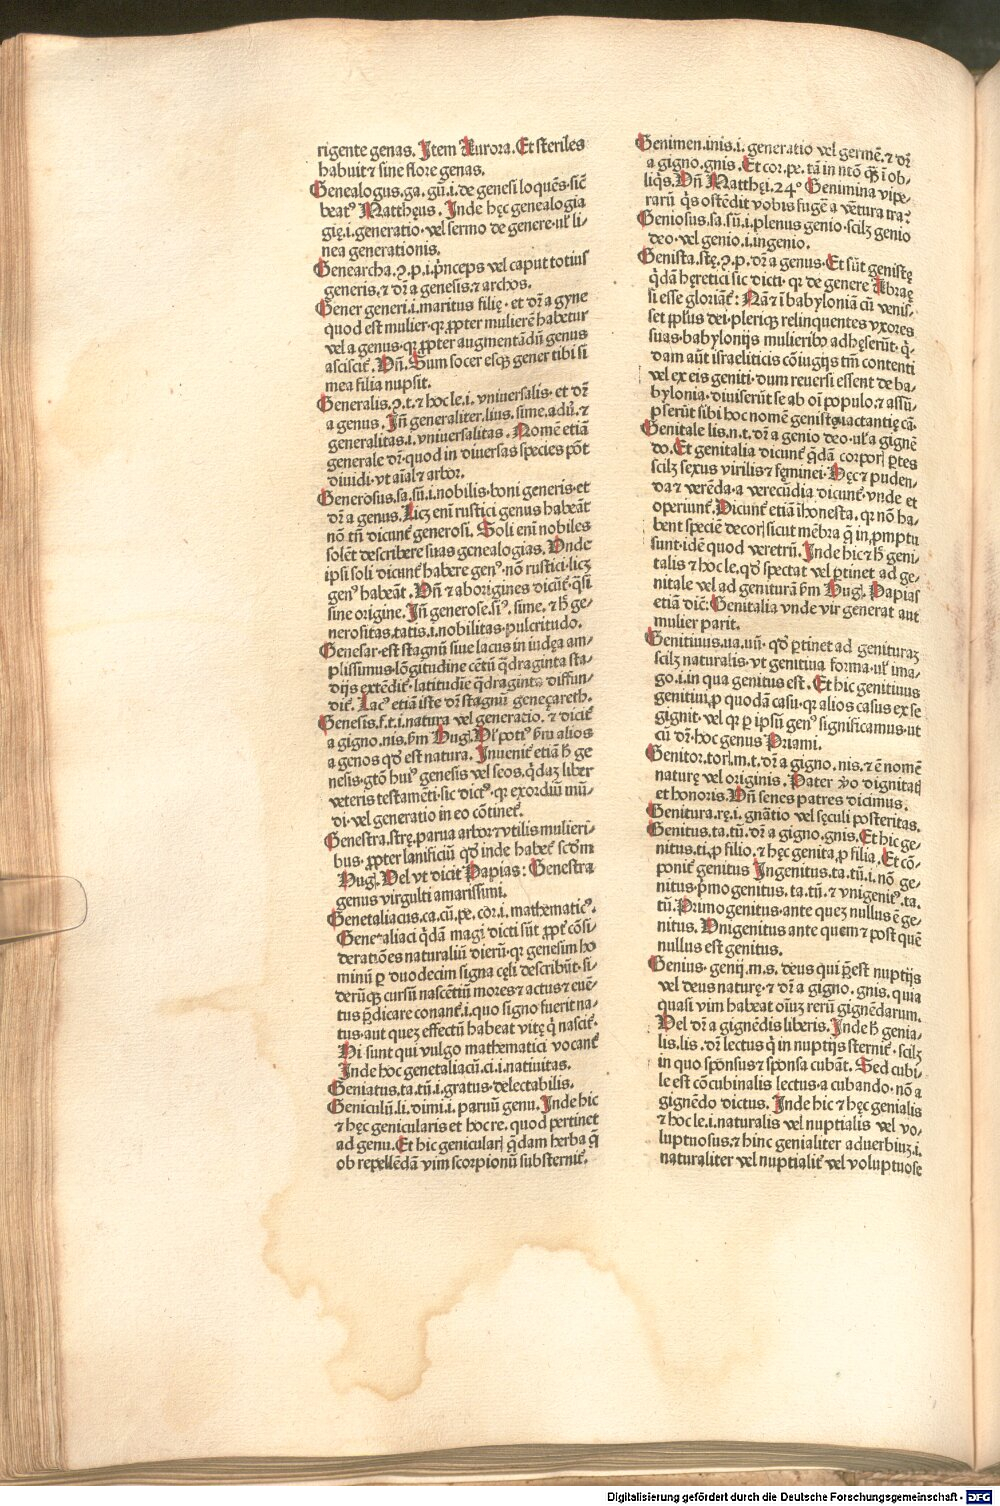 rigente genas. Item Aurora. Et steriles
habuit ⁊ sine flore genas.
Genealogus.ga. gũ.i. de genesi loquẽs. sic̃
beatꝰ Matthęus. Inde hęc genealogia
gię.i. generatio. vel sermo de genere. ul̓ li-
nea generationis.
Genearcha.ꝯ.p.i. p̃nceps vel caput totius
generis. ⁊ dr̃ a genesis. ⁊ archos.
Gener generi.i. maritus filię. et dr̃ a gyne
quod est mulier. qꝛ ꝓpter mulierẽ habetur
vel a genus. qꝛ ꝓpter augmentãdũ genus
asciscit̃. Vñ. Sum socer eius gener tibi si
mea filia nupsit.
Generalis.ꝯ.t. ⁊ hoc le.i. vniuersalis. et dr̃
a genus. Iñ generaliter.lius. sime. adũ. ⁊
generalitas.i. vniuersalitas. Nomẽ etiã
generale dr̃. quod in diuersas species põt
diuidi. vt aĩal ⁊ arbor.
Generosus.sa.sũ.i. nobilis. boni generis. et
dr̃ a genus. Licꝫ eni rustici genus habeãt
nõ tñ dicunt̃ generosi. Soli eni nobiles
solẽt describere suas genealogias. Vnde
ipsi soli dicunt̃ habere genꝰ. nõ rustici licꝫ
genꝰ habeãt. Vñ ⁊ aborigines dicũt̃. q̃si
sine origine. Iñ generose.siꝰ. sime. ⁊ h̃ ge-
nerositas.tatis.i. nobilitas. pulcritudo.
Genesar. est stagnũ siue lacus in iudęa am-
plissimus. lõgitudine cẽtũ q̃draginta sta-
dijs extẽdit̃. latitudie q̃draginta diffun-
dit̃. Lacꝰ etiã iste dr̃ stagnũ geneçareth.
Genesis.f.t.i. natura vel generatio. ⁊ dicit̃
a gigno.nis. ẜm Hug. Vl̓ potiꝰ ẜm alios
a genos qđ est natura. Inuenit̃ etiã h̃ ge
nesis. gtõ huiꝰ genesis vel seos. q̃daꝫ liber
veteris testamẽti. sic dictꝰ. qꝛ exordiũ mũ-
di. vel generatio in eo cõtinet̃.
Genestra.strę. parua arbor ⁊ vtilis mulieri-
bus. ꝓpter lanificiũ qđ inde habet̃ scđm
Hug. Vel vt dicit Papias: Genestra
genus virgulti amarissimi.
Genetaliacus.ca.cũ.pe. cor.i. mathematicꝰ.
Genetaliaci q̃dã magi dicti sũt ꝓpt̃ cõsi-
deratiões naturaliũ dierũ. qꝛ genesim ho
minũ ꝑ duodecim signa cęli describũt. si-
derũqꝫ cursũ nascẽtiũ mores ⁊ actus ⁊ euẽ-
tus p̃dicare conant̃.i. quo signo fuerit na-
tus. aut queꝫ effectũ habeat vitę q̃ nascit̃.
Hi sunt qui vulgo mathematici vocant̃
Inde hoc genetaliacũ.ci.i. natiuitas.
Geniatus.ta.tũ.i. gratus. delectabilis.
Geniculũ.li. dimi.i. paruũ genu. Inde hic
⁊ hęc genicularis et hoc re. quod pertinet
ad genu. Et hic genicularꝭ q̃dam herba q̃
ob repellẽdã vim scorpionũ substernit̃.
Genimen.inis.i. generatio vel germẽ. ⁊ dr̃
a gigno.gnis. Et cor.pe. tã in ntõ q̃ꝫ i ob-
liq̃s. Vñ Matthęi.24ꝰ Genimina vipe-
rarũ q̃s ostẽdit vobis fugẽ a vẽtura ira?
Geniosus.sa.sũ.i. plenus genio. scilꝫ genio
deo. vel genio.i. ingenio.
Genista.stę.ꝯ.p. dr̃ a genus. Et sũt genistę
q̃dã hęretici sic dicti. qꝛ de genere Abraę
si esse gloriãt̃: Nã ⁊ i babyloniã cũ venis-
set pp̃lus dei. pleriqꝫ relinquentes vxores
suas. babylonijs mulieribꝰ adhęserũt. q̃-
dam aũt israeliticis cõiugijs tm̃ contenti
vel ex eis geniti. dum reuersi essent de ba-
bylonia. diuiserũt se ab oĩ populo. ⁊ assũ-
pserũt sibi hoc nomẽ genistę iactantię cã.
Genitale lis.n.t. dr̃ a genio deo. ul̓ a gignẽ
do. Et genitalia dicunt̃ q̃dã corporꝭ ꝑtes
scilꝫ sexus virilis ⁊ fęminei. Hęc ⁊ puden-
da ⁊ verẽda. a verecũdia dicunt̃. vnde et
operiunt̃. Dicunt̃ etiã ihonesta. qꝛ nõ ha-
bent speciẽ decorꝭ sicut mẽbra q̃ in ꝓmptu
sunt. idẽ quod veretrũ. Inde hic ⁊ h̃ geni-
talis ⁊ hoc le. qđ spectat vel ꝑtinet ad ge-
nitale vel ad geniturã ẜm Hug. Papias
etiã dic̃: Genitalia vnde vir generat aut
mulier parit.
Genitiuus.ua.uũ. qđ ꝑtinet ad genituraꝫ
scilꝫ naturalis. vt genitiua forma. ul̓ ima-
go.i. in qua genitus est. Et hic genitiuus
genitiui ꝓ quodã casu. qꝛ alios casus ex se
gignit. vel qꝛ ꝑ ipsũ genꝰ significamus. ut
cũ dr̃. hoc genus Priami.
Genitor.torꝭ.m.t. dr̃ a gigno.nis. ⁊ ẽ nomẽ
naturę vel originis. Pater ṽo dignitatꝭ
et honoris. Vñ senes patres dicimus.
Genitura.rę.i. gnãtio vel sęculi posteritas.
Genitus.ta.tũ. dr̃ a gigno.gnis. Et hic ge-
nitus.ti. ꝓ filio. ⁊ hęc genita. ꝓ filia. Et cõ-
ponit̃ genitus Ingenitus.ta.tũ.i. nõ ge-
nitus. p̃mogenitus.ta.tũ. ⁊ vnigenitꝰ.ta.
tũ. Primogenitus. ante queꝫ nullus ẽ ge-
nitus. Vnigenitus ante quem ⁊ post quẽ
nullus est genitus.
Genius. genij.m.s. deus qui p̃est nuptijs
vel deus naturę. ⁊ dr̃ a gigno.gnis. quia
quasi vim habeat oĩuꝫ rerũ gignẽdarum.
Vel dr̃ a gignẽdis liberis. Inde h̃ genia-
lis.lis. dr̃ lectus q̃ in nuptijs sternit̃. scilꝫ
in quo spõnsus ⁊ sponsa cubãt. Sed cubi-
le est cõcubinalis lectus. a cubando. nõ a
gignẽdo dictus. Inde hic ⁊ hęc genialis
⁊ hoc le.i. naturalis vel nuptialis vel vo-
luptuosus. ⁊ hinc genialiter aduerbiuꝫ.i.
naturaliter vel nuptialit̃ vel voluptuose
Digitalisierung gefördert durch die Deutsche Forschungsgemeinschaft - DFG